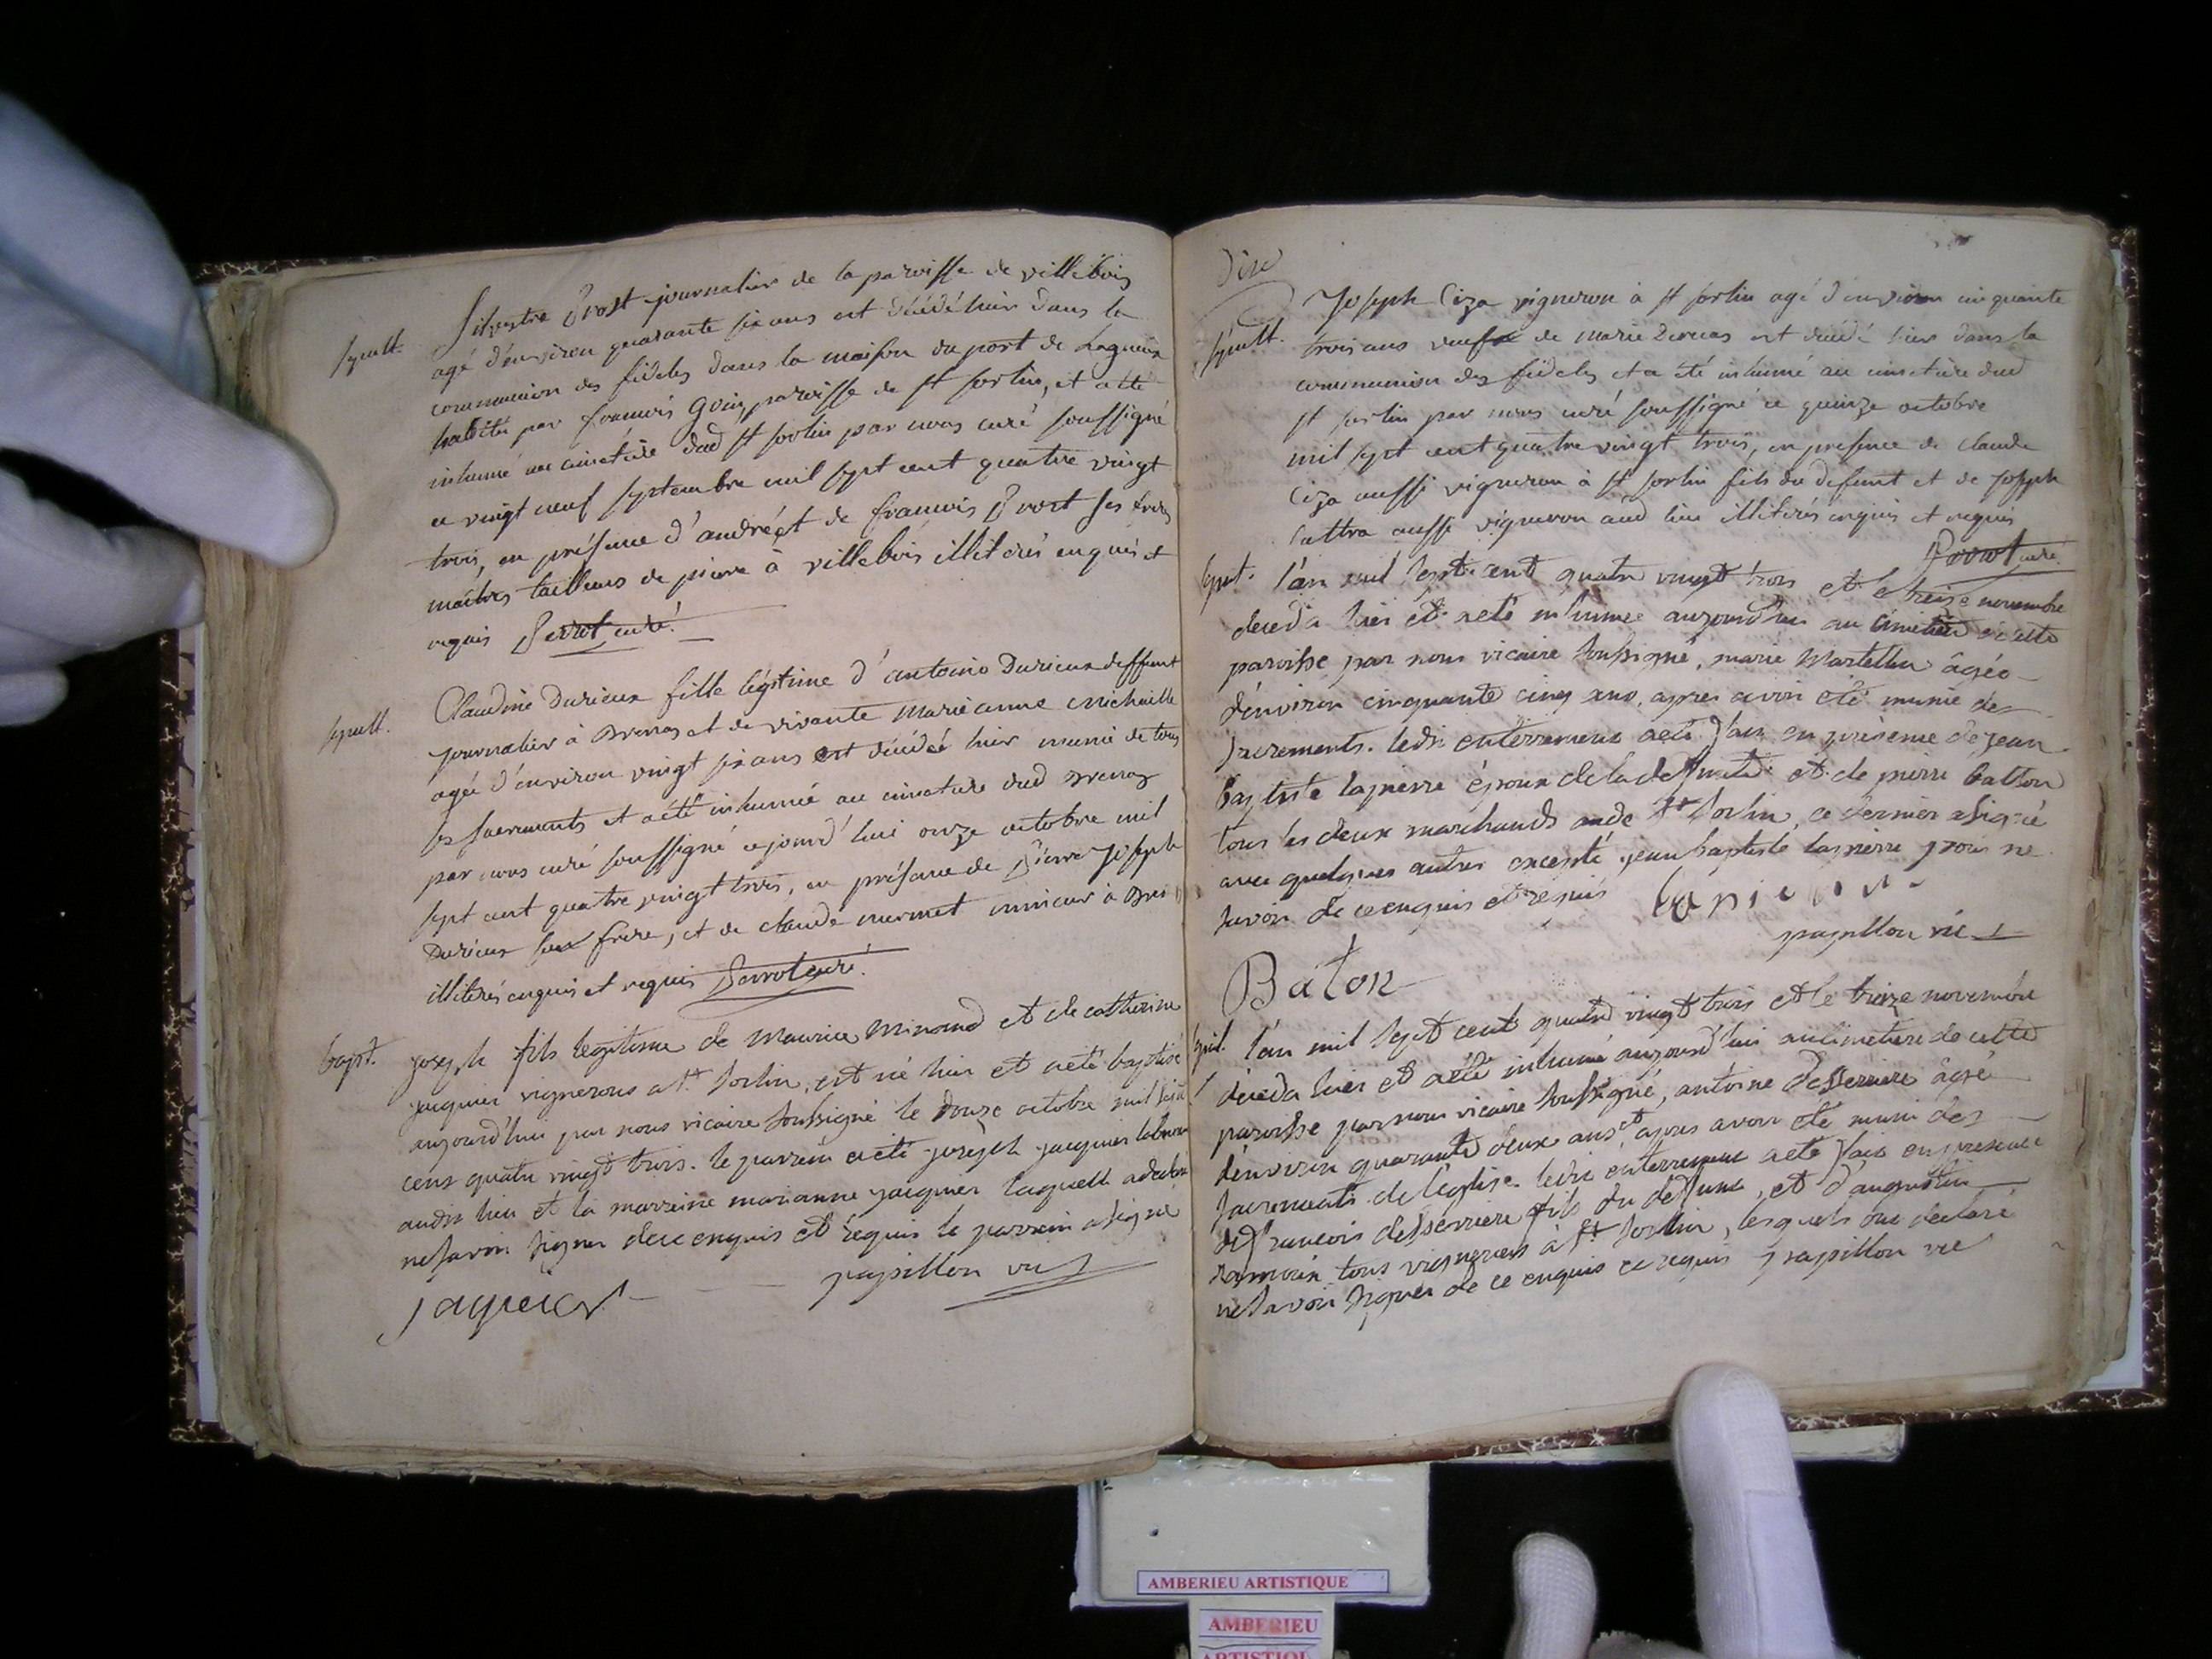 sepult. Silvestre Prost journalier de la paroisse de villebois
agé d'environ quarante six ans est décédé hier dans la
communion des fidèles dans la maison du port de Lagnieu
habitée par francois Goin paroisse de st sorlin, et a été
inhumé au cimetière dud st sorlin par nous curé soussigné
ce vingt neuf septembre mil sept cent quatre vingt
trois, en présence d'andré et de francois Prost ses freres
maîtres tailleurs de pierre à villebois illitérés enquis et
requis Perrot curé.
sepult. Claudine Durieux fille légitime d'antoine Durieux deffunt
journalier à et de vivante marie anne michaille
agée d'environ vingt six ans est décédée hier munie de tous
les sacrements et a été inhumée au cimetière dud
par nous curé soussigné ce jourd'hui onze octobre mil
sept cent quatre vingt trois, en présence de Pierre Joseph
Durieux son frere, et de claude mermet à
illitérés enquis et requis Perrot curé.
bapt. joseph fils legitime de maurice minand et de catherine
jacquier vignerons a st. sorlin, est né hier et a été baptisé
aujourd'hui par nous vicaire soussigné le douze octobre mil sept
cent quatre vingt trois. le parrein a été joseph jacquier laboureur
audit lieu et la marreine marianne jacquier laquelle a déclaré
ne savoir signer de ce enquis et requis le parrein a signé
papillon vic
jaqueier
Joseph Ciza vigneron à st sorlin agé d'environ cinquante
sepult. trois ans veuf de marie est décédé hier dans la
communion des fidèles et a été inhumé au cimetière dud
st sorlin par nous curé soussigné ce quinze octobre
mil sept cent quatre vingt trois, en présence de claude
Ciza aussi vigneron à st sorlin fils du defunt et de Joseph
aussi vigneron aud lieu illitérés enquis et requis
Perrot curé.
sepult. l'an mil sept cent quatre vingt trois et le treize novembre
deceda hier et a été inhumée aujourd'hui au cimetière de cette
paroisse par nous vicaire soussigné, marie Martelin âgée
d'environ cinquante cinq ans, apres avoir été munie des
sacrements. ledit enterrement a été fait en présence de jean
baptiste lapierre époux de la deffunte et de pierre batton
tous les deux marchands aud st sorlin, ce dernier a signé
avec quelques autres excepté jean baptiste lapierre pour ne
savoir de ce enquis et requis lapierre
papillon vic
Baton
sepul. l'an mil sept cent quatre vingt trois et le treize novembre
deceda hier et a été inhumé aujourd'hui au cimetiere de cette
paroisse par nous vicaire soussigné, antoine desserriere âgé
d'environ quarante deux ans, apres avoir été muni des
sacrements de l'eglise. ledit enterrement a été fait en presence
de francois desserriere fils du deffunt, et d'augustin
ramoin tous vignerons à st sorlin, lesquels ont declaré
ne savoir signer de ce enquis et requis papillon vic
AMBERIEU ARTISTIQUE
AMBERIEU
ARTISTIQUE